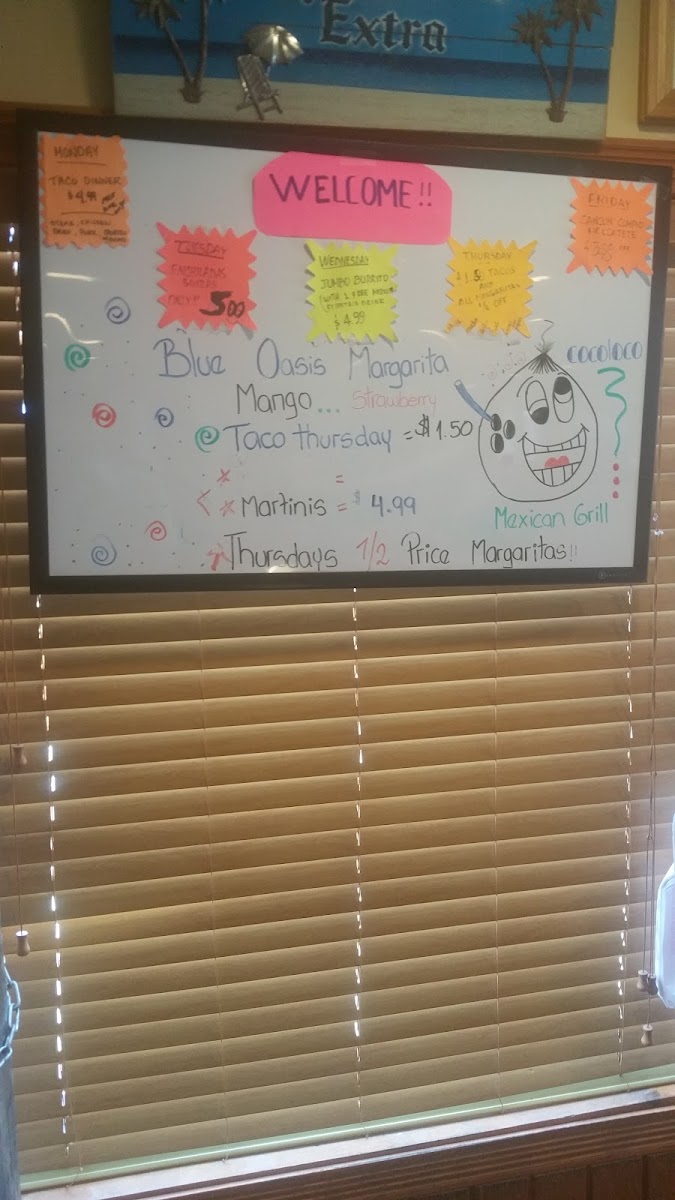 Extra
WELCOME!!
MONDAY
TACO DINNER
$4.99
TUESDAY
ONLY!! 500
WEDNESDAY
JUMBO BURRITO
$4.99
THURSDAY
$1.5 TACOS
AND
ALL MARGARITAS
½ OFF
FRIDAY
Blue Oasis Margarita
Mango... Strawberry
Taco thursday = $1.50
Martinis = $4.99
Thursdays 1/2 Price Margaritas!!
COCOLOCO
Mexican Grill